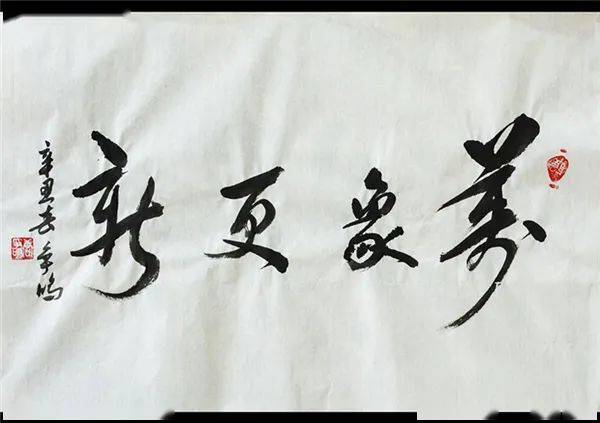 萬象更新
辛丑春